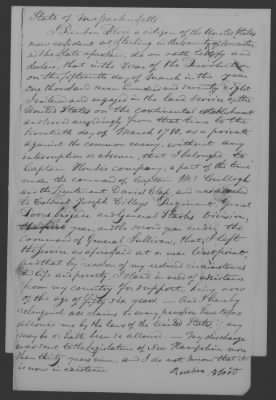 State of Massachusetts
I Reuben Hoit a citizen of the United States
now resident at Sterling in the County of Worcester
in the State aforesaid, do on oath testify and
declare, that in the Year of the Revolution
on the fifteenth day of March in the year
one thousand seven hundred and seventy eight
I enlisted and engaged in the land service of the
United States on the continental establishment
and served accordingly from that time to the
twentieth day of March 1780, as a private
against the common enemy, without any
interruption or absence, that I belonged to
Captain company, a part of the time
under the command of Captain McCullogh
and the Lieutenant David and was attached
to Colonel Joseph Cilleys Regiment, General
Poors brigade and General Starks Division,
year, and the second year under the
command of General Sullivan, that I left
the service as aforesaid at or near Westpoint
and that by reason of my reduced circumstances
in life and poverty, I stand in need of assistance
from my country for support, being now
of the age of fifty six years — And I hereby
relinquish all claims to every pension heretofore
allowed me by the laws of the United States, if any
may be or hath been so allowed. — My discharge
was sent to the legislature of New Hampshire more
than thirty years since, and I do not know that it
is now in existence
Reuben Hoit